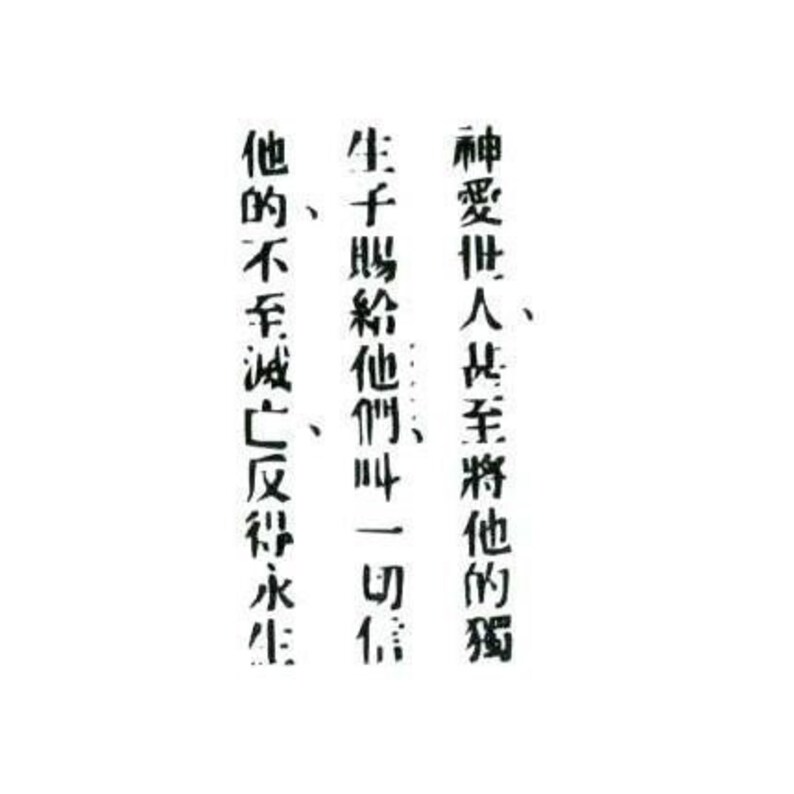 神愛世人、甚至將他的獨
生子賜給他們、叫一切信
他的、不至滅亡、反得永生